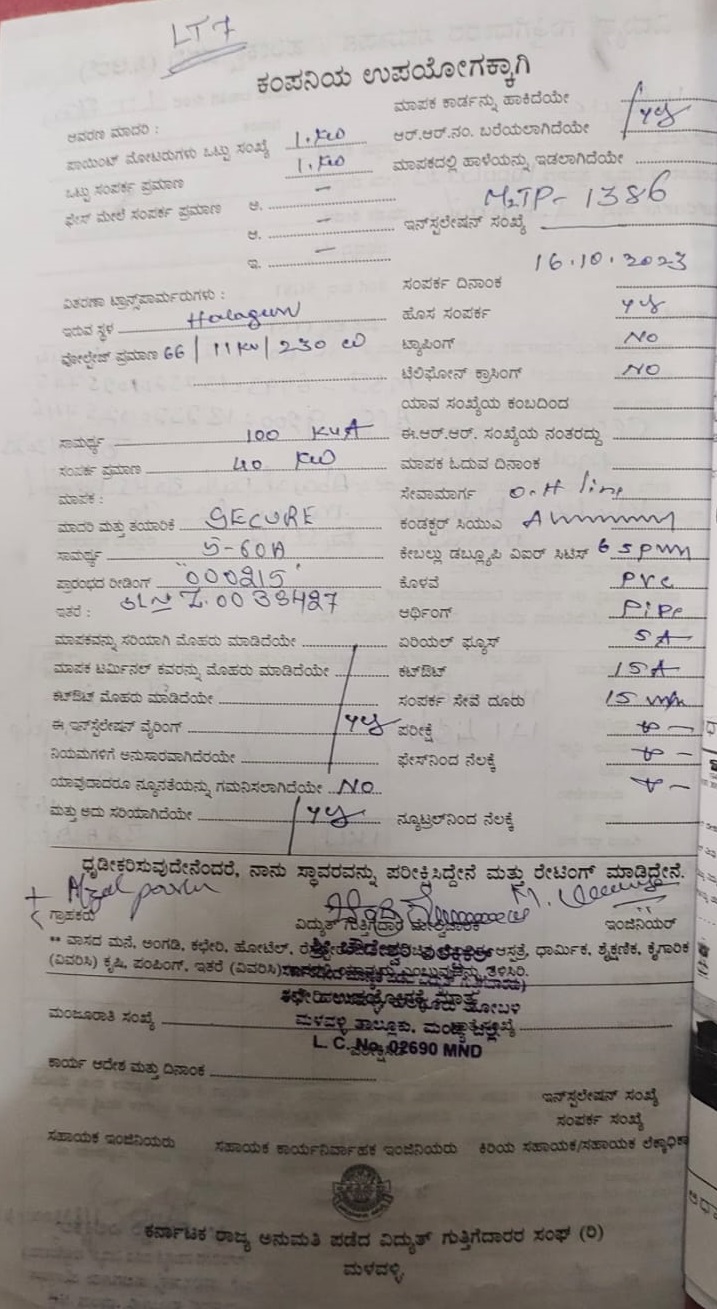 LT7
ಕಂಪನಿಯ ಉಪಯೋಗಕ್ಕಾಗಿ
ಮಾಪಕ ಕಾರ್ಡನ್ನು ಹಾಕಿದೆಯೇ
ಆವರಣ ಮಾದರಿ :
ಆರ್.ಆರ್.ನಂ. ಬರೆಯಲಾಗಿದೆಯೇ yes
ಪಾಯಿಂಟ್ ಮೋಟರುಗಳು ಒಟ್ಟು ಸಂಖ್ಯೆ 1.KW
ಮಾಪಕದಲ್ಲಿ ಹಾಳೆಯನ್ನು ಇಡಲಾಗಿದೆಯೇ
ಒಟ್ಟು ಸಂಪರ್ಕ ಪ್ರಮಾಣ 1.KW
ಫೇಸ್ ಮೇಲೆ ಸಂಪರ್ಕ ಪ್ರಮಾಣ ಅ. –
ಇನ್‌ಸ್ಟಲೇಷನ್ ಸಂಖ್ಯೆ MLTP- 1386
ಆ. –
ಇ. –
ಸಂಪರ್ಕ ದಿನಾಂಕ 16.10.2023
ವಿತರಣಾ ಟ್ರಾನ್ಸ್‌ಪಾರ್ಮರುಗಳು :
ಇರುವ ಸ್ಥಳ
ಹೊಸ ಸಂಪರ್ಕ yes
ವೋಲ್ಟೇಜ್ ಪ್ರಮಾಣ 66 | 11KV | 230
ಟ್ಯಾಪಿಂಗ್ NO
ಟೆಲಿಫೋನ್ ಕ್ರಾಸಿಂಗ್ NO
ಯಾವ ಸಂಖ್ಯೆಯ ಕಂಬದಿಂದ
ಸಾಮರ್ಥ್ಯ 100 KVA
ಈ.ಆರ್.ಆರ್. ಸಂಖ್ಯೆಯ ನಂತರದ್ದು
ಸಂಪರ್ಕ ಪ್ರಮಾಣ 40 KW
ಮಾಪಕ ಓದುವ ದಿನಾಂಕ
ಮಾಪಕ :
ಸೇವಾಮಾರ್ಗ O.H line
ಮಾದರಿ ಮತ್ತು ತಯಾರಿಕೆ SECURE
ಕಂಡಕ್ಟರ್ ಸಿಯುಎ
ಸಾಮರ್ಥ್ಯ 5-60A
ಕೇಬಲ್ಲು ಡಬ್ಲ್ಯೂಪಿ ವಿಐಆರ್ ಸಿಟಿಸ್
ಪ್ರಾರಂಭದ ರೀಡಿಂಗ್ "000215"
ಕೊಳವೆ PVC
ಇತರೆ : SL No Z.0038427
ಆರ್ಥಿಂಗ್ Pipe
ಮಾಪಕವನ್ನು ಸರಿಯಾಗಿ ಮೊಹರು ಮಾಡಿದೆಯೇ
ಏರಿಯಲ್ ಫ್ಯೂಸ್ 5A
ಮಾಪಕ ಟರ್ಮಿನಲ್ ಕವರನ್ನು ಮೊಹರು ಮಾಡಿದೆಯೇ
ಕಟ್‌ಔಟ್ 15A
ಕಟ್‌ಔಟ್ ಮೊಹರು ಮಾಡಿದೆಯೇ
ಸಂಪರ್ಕ ಸೇವೆ ದೂರು 15
ಈ ಇನ್‌ಸ್ಟಲೇಷನ್ ವೈರಿಂಗ್ yes
ಪರೀಕ್ಷೆ
ನಿಯಮಗಳಿಗೆ ಅನುಸಾರವಾಗಿದೆರೆಯೇ
ಫೇಸ್‌ನಿಂದ ನೆಲಕ್ಕೆ
ಯಾವುದಾದರೂ ನ್ಯೂನತೆಯನ್ನು ಗಮನಿಸಲಾಗಿದೆಯೇ NO
ಮತ್ತು ಅದು ಸರಿಯಾಗಿದೆಯೇ yes
ನ್ಯೂಟ್ರಲ್‌ನಿಂದ ನೆಲಕ್ಕೆ
ಧೃಡೀಕರಿಸುವುದೇನೆಂದರೆ, ನಾನು ಸ್ಥಾವರವನ್ನು ಪರೀಕ್ಷಿಸಿದ್ದೇನೆ ಮತ್ತು ರೇಟಿಂಗ್ ಮಾಡಿದ್ದೇನೆ.
ಗ್ರಾಹಕರ ವಿದ್ಯುತ್ ಗುತ್ತಿಗೆದಾರ ಮೇಲ್ವಿಚಾರಕ ಇಂಜಿನಿಯರ್
** ವಾಸದ ಮನೆ, ಅಂಗಡಿ, ಕಛೇರಿ, ಹೋಟೆಲ್, ಆಸ್ಪತ್ರೆ, ಧಾರ್ಮಿಕ, ಶೈಕ್ಷಣಿಕ, ಕೈಗಾರಿಕ
(ವಿವರಿಸಿ) ಕೃಷಿ, ಪಂಪಿಂಗ್, ಇತರೆ (ವಿವರಿಸಿ) ತಿಳಿಸಿರಿ.
ಕಛೇರಿ ಉಪಯೋಗಕ್ಕೆ ಮಾತ್ರ
ಮಂಜೂರಾತಿ ಸಂಖ್ಯೆ
ಮಳವಳ್ಳಿ ತಾಲ್ಲೂಕು,
L. C. No. 02690 MND
ಕಾರ್ಯ ಆದೇಶ ಮತ್ತು ದಿನಾಂಕ
ಇನ್‌ಸ್ಟಲೇಷನ್ ಸಂಖ್ಯೆ
ಸಂಪರ್ಕ ಸಂಖ್ಯೆ
ಸಹಾಯಕ ಇಂಜಿನಿಯರು ಸಹಾಯಕ ಕಾರ್ಯನಿರ್ವಾಹಕ ಇಂಜಿನಿಯರು ಕಿರಿಯ ಸಹಾಯಕ/ಸಹಾಯಕ
ಕರ್ನಾಟಕ ರಾಜ್ಯ ಅನುಮತಿ ಪಡೆದ ವಿದ್ಯುತ್ ಗುತ್ತಿಗೆದಾರರ ಸಂಘ (ರಿ)
ಮಳವಳ್ಳಿ